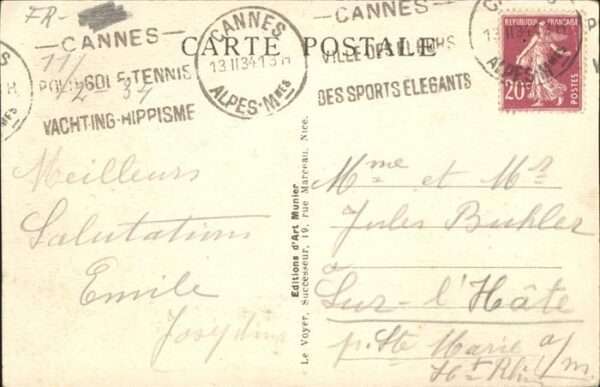 FR-
CANNES
POLO-GOLF-TENNIS
YACHTING-HIPPISME
11/2 34
CARTE POSTALE
CANNES
13 II 34
ALPES-Mmes
CANNES
VILLE DES FLEURS
DES SPORTS ELEGANTS
ALPES-Mmes
REPUBLIQUE FRANÇAISE
20c
POSTES
Meilleurs
Salutations
Emile
Editions d'Art Munier
Le Voyer, Successeur, 19, rue Marceau, Nice.
Mme et Mr
Jules Buhler
Sur-l'Hâte
p. Ste Marie a/m
Ht Rhin